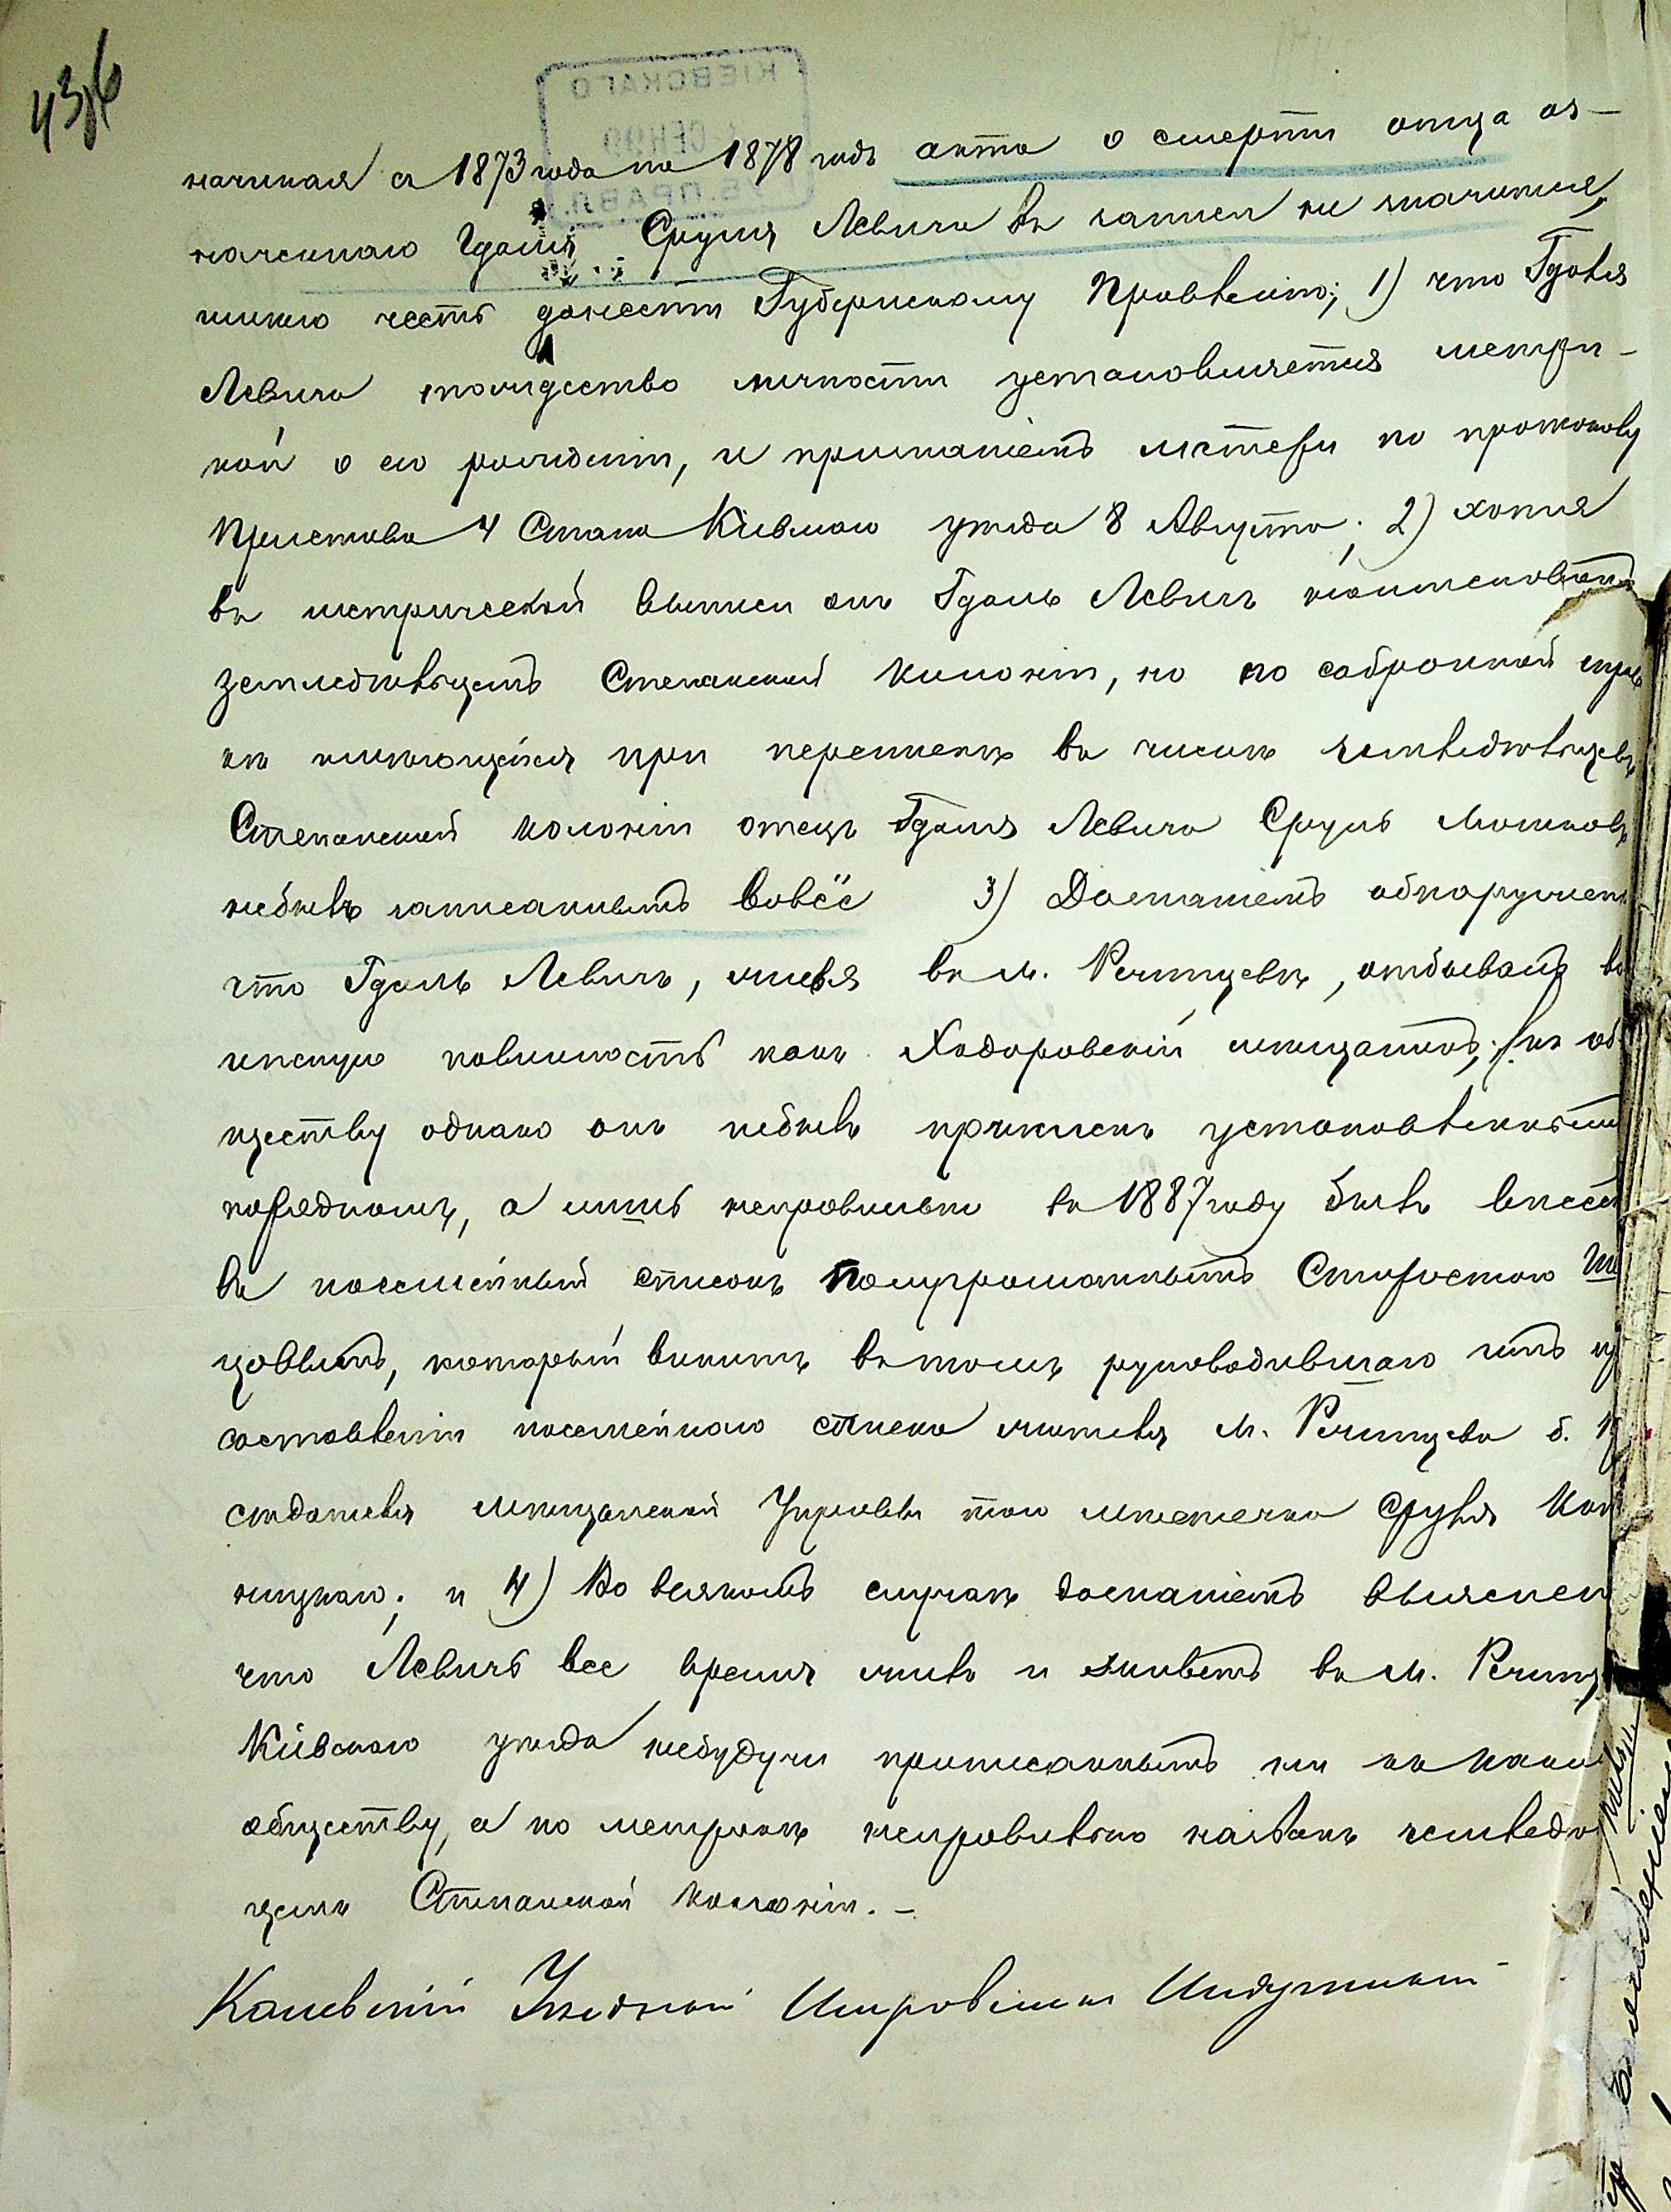 43об
КІЕВСКАГО
начиная съ 1873 года по 1878 годъ акта о смерти отца оз-
наченнаго Гдаля Сруля Левича въ записи не значится,
имѣю честь донести Губернскому Правленію; 1) что Гдаля
Левича тождество личности установляется метри-
кой о его рожденіи, и признаніемъ матери по протоколу
Пристава 4 Стана Кіевскаго уѣзда 8 Августа; 2) хотя
въ метрической выписи онъ Гдаль Левичъ наименованъ
земледѣльцемъ Степанской колоніи, но по собранной справ
кѣ имѣющейся при перепискѣ въ числѣ земледѣльцевъ
Степанской колоніи отецъ Гдаля Левича Сруль Мошков
небылъ записаннымъ вовсе 3) Дознаніемъ обнаружен
что Гдаль Левичъ, живя въ м. Ржищевѣ, отбывалъ во
инскую повинность какъ Ходоровскій мѣщанинъ; къ об
ществу однако онъ небылъ приписанъ установленнымъ
порядкомъ, а лишь неправильно въ 1887 году былъ внесен
въ посемейный списокъ полуграмотнымъ Старостою
который винитъ въ томъ руководившаго имъ
составленіи посемейнаго списка жителя м. Ржищева б.
сѣдателя мѣщанской Управы того мѣстечка Сруля
и 4) Во всякомъ случаѣ дознаніемъ выяснен
что Левичъ все время жилъ и живетъ въ м. Ржищ
Кіевскаго уѣзда небудучи приписаннымъ ни къ како
обществу, а по метрикѣ неправильно названъ земледѣ
цемъ Степанской колоніи. -
Каневскій Уѣздный Исправникъ